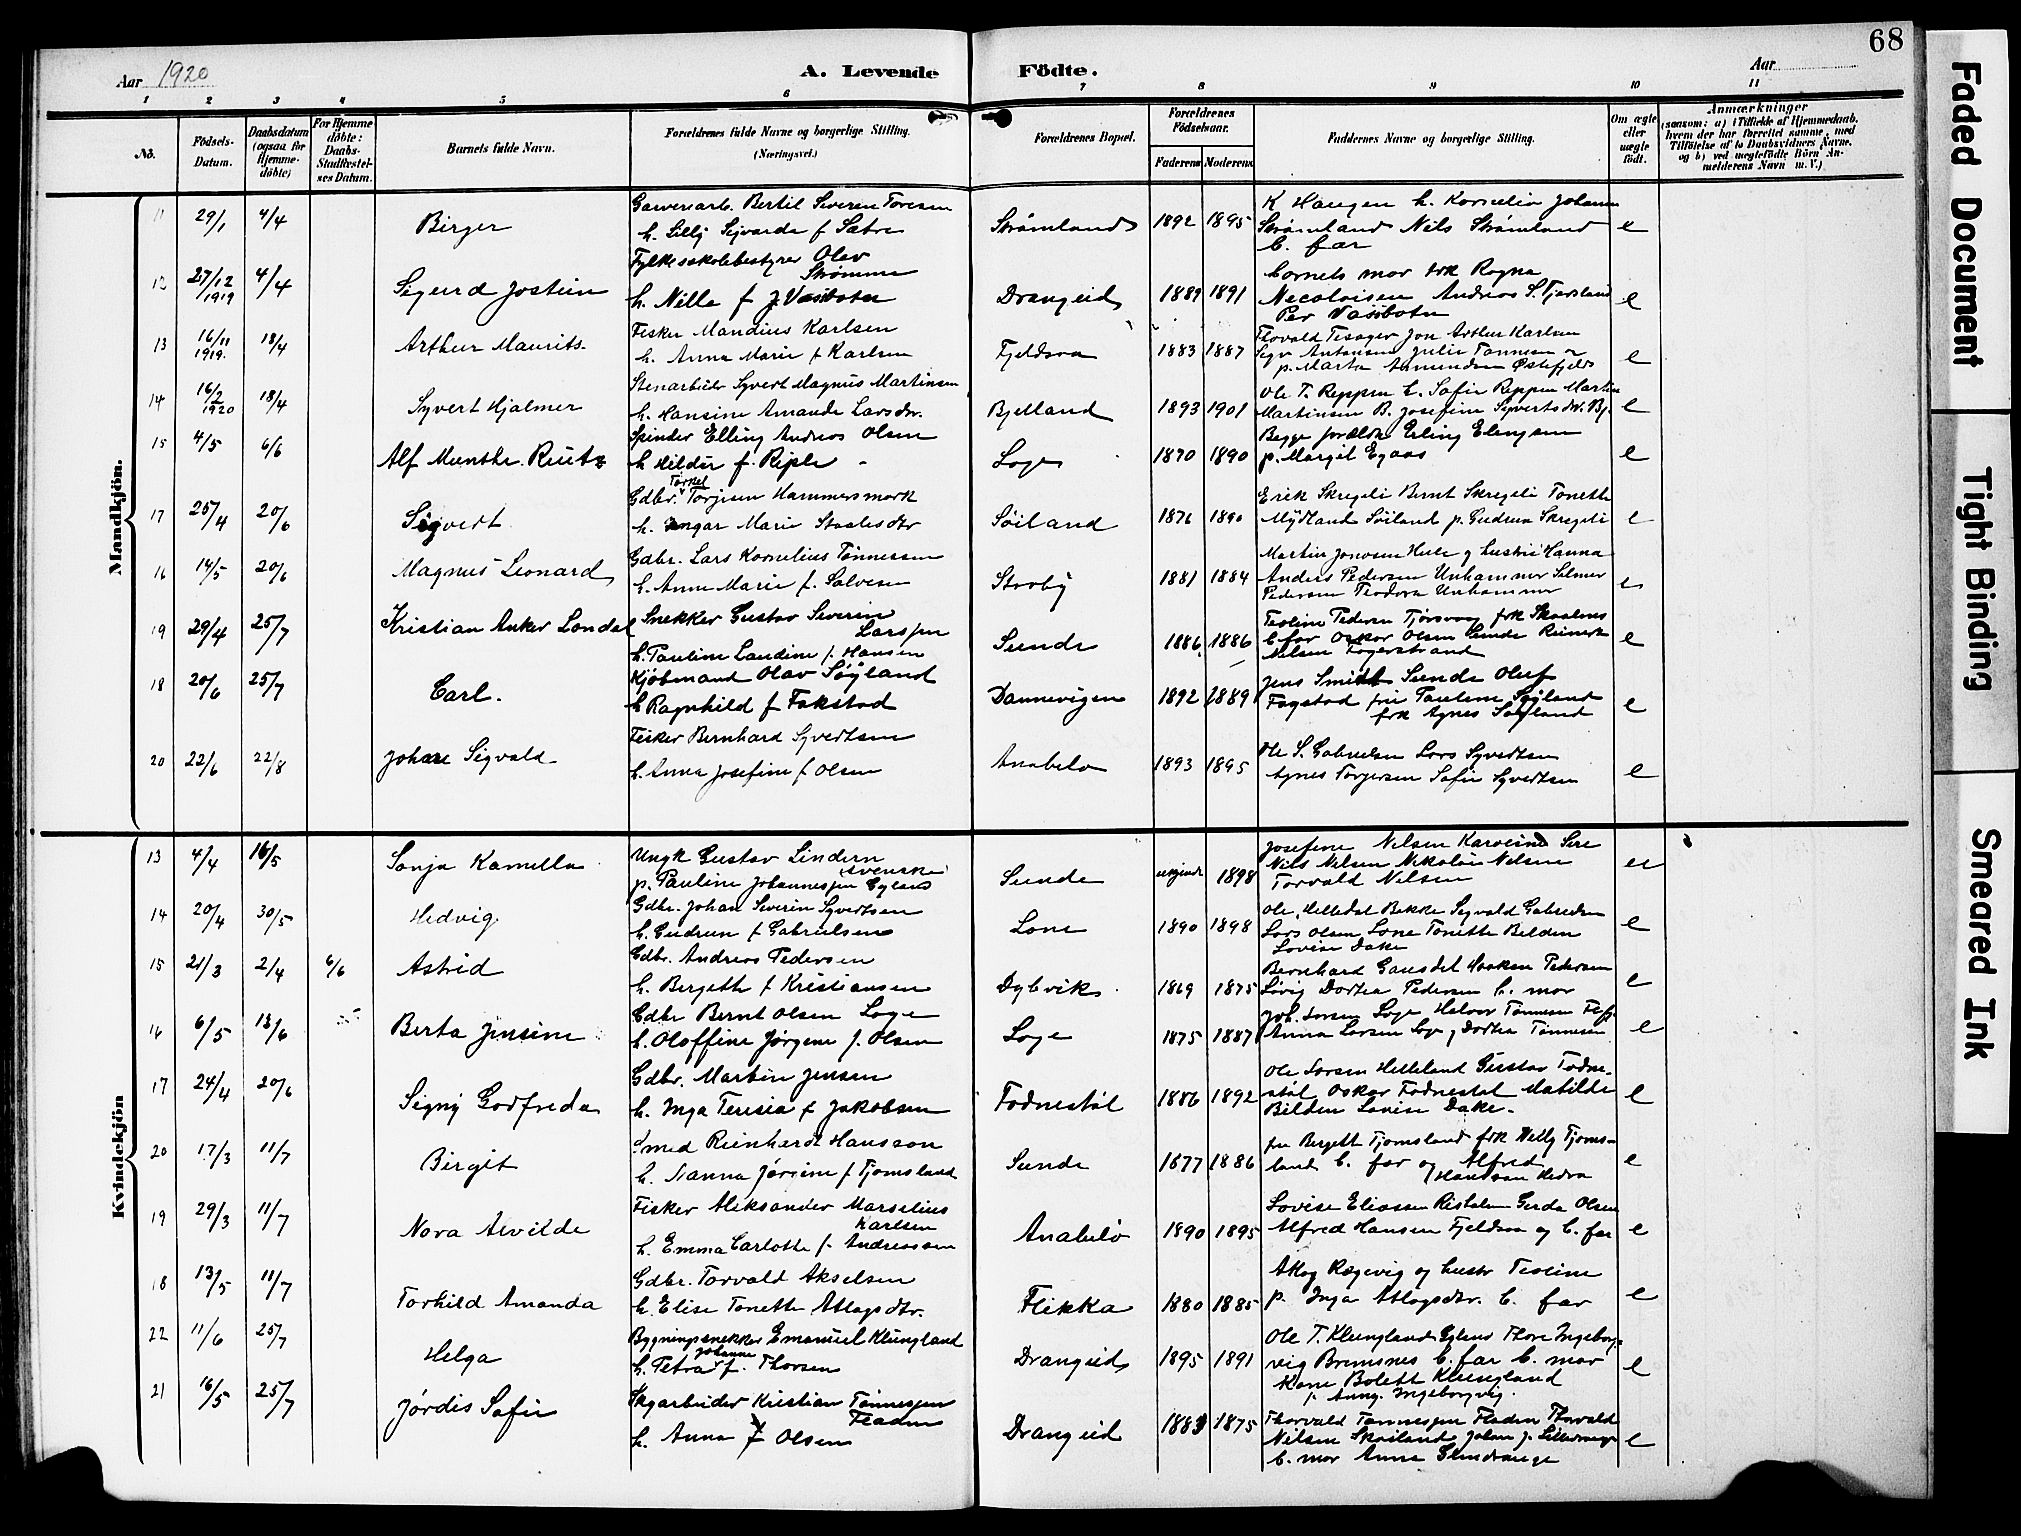 68
Aar 1920
A. Levende Födte.
Aar
1 2 3 4 5 6 7 8 9 10 11
No.
Födsels-Datum.
Daabsdatum (ogsaa for Hjemme-døbte)
For Hjemme døbte: Daabs-Stadfæstel-ses Datum.
Barnets fulde Navn.
Forældrenes fulde Navne og borgerlige Stilling. (Næringsvei.)
Forældrenes Bopæl.
Forældrenes Födselsaar.
Faderens Moderens
Faddernes Navne og borgerlige Stilling.
Om ægte eller uægte födt.
Anmærkninger
(saasom: a) i Tilfælde af Hjemmedaab, hvem der har forrettet samme, med Tilföielse af to Daabsvidners Navne, og b) ved uegtefödte Börn An-melderens Navn m. V.)
Mandkjön.
11 29/1 4/4 Birger
Garveriarb. Bertil Severin Toresen
h. Lilly Sigvarda f Sætre
Strømland 1892 1895
K Haugen h. Kornelia Johanne
Strømland Nils Strømland
b. far
e
12 27/12 1919 4/4 Sigurd Jostein
Fylkesskolebestyrer Olav
Strømme
h. Nille f J. Vassbotn
Drangeid 1889 1891
barnets mor frk Ragna
Necolaisen Andreas S. Fjersland
Per Vassbotn
e
13 16/11 1919. 18/4 Arthur Maurits
Fisker Mandius Karlsen
h. Anna Marie f Karlsen
Fjeldsaa 1883 1887
Thorvald Jon Arthur Karlsen
Antonsen Julie Tønnesen
p. Marta Amundsen Østefjeld
e
14 16/2 1920 18/4 Syvert Hjalmer
Stenarbeider Syvert Magnus Martinsen
h. Hansine Amanda Larsdtr.
Bjelland 1893 1901
Ole T. Reppen h. Sofie Reppen Martin
Martinsen B. Josefine Syvertsdtr. Bj.
e
15 4/5 6/6 Alf Munthe Reutz
Elling Andreas Olsen
h Hildur f. Riple
Loge 1870 1890
Begge foreldre Erling Elengsen
p. Margit Egaas
e
17 25/4 20/6 Sigvert
Torkel
Gdbr. Torjesen Hammersmark
h. Ingar Marie Staalesdtr
Søiland 1876 1890
Erik Skregeli Bernt Skregeli Tonette
Mydland Søiland p. Gudrun Skregeli
e
16 14/5 20/6 Magnus Leonard
Gdbr. Lars Kornelius Tønnessen
h. Anne Marie f. Salvesen
Stroby 1881 1884
Martin Jonassen og hustru Hanna
Anders Pedersen Unhammer Selmer
Pedersen Teodora Unhammer
e
19 29/4 25/7 Kristian Anker Londal
Snekker Gustav Severin
Larssen
h. Pauline Laudine f. Hansen
Sunde 1886 1886
Teoline Pedersen Tjørsvaag frk Skaalnes
b. far Oskar Olsen Sunde Reinert
Nilsen Fogerstrand
e
18 20/6 25/7 Carl.
Kjøbmand Olav Søyland
h Ragnhild f Fakstad
Dannevigen 1892 1889
Jens Smith Sunde Oluf
Fagstad fru Pauline Søyland
frk Agnes Søyland
e
20 22/6 22/8 Johan Sigvald
Fisker Bernhard Syvertsen
h. Anna Josefine f. Olsen
Anabeløa 1893 1895
Ole S. Gabrielsen Lars Syvertsen
Agnes Torgersen Sofie Syvertsen
e
Kvindekjön
13 4/4 16/5 Sonja Kamella
Ungk Gustav Lindern
(svenske)
p. Pauline Johannessen Egland
Sunde 1898
Josefine Nelsen Karoline Sire
Nils Nilsen Nikolai Nilsen
Torvald Nilsen
ue
14 20/4 30/5 Hedvig
Gdbr. Johan Severin Syvertsen
h. Gudrun f Gabrielsen
Lone 1890 1898
Ole Helledal Bakke Sigvald Gabrielsen
Lars Olsen Lone Tonette Belden
Lovise Dake
e
15 21/3 2/4 6/6 Astrid
Gdbr. Andreas Pedersen
h. Bergette f Kristiansen
Dybvik 1869 1875
Bernhard Gausdal Haaken Pedersen
Løvig Dortea Pedersen b. mor
e
16 6/5 13/6 Berta Jensine
Gdbr Bernt Olsen Loge
h. Oloffine Jørgine f. Olsen
Loge 1875 1887
Joh. Larsen Loge Helver Tønnesen
Anna Larsen Loge, Dortea Tønnesen
e
17 24/4 20/6 Signy Godfreda
Gdbr. Martin Jensen
h. Inga Teresia f Jakobsen
Fodnestøl 1886 1892
Ole Larsen Helleland Gustav Fodne-
støl Oskar Fodnestøl Matilde
Bilden Lovise Dake.
e
20 17/3 11/7 Birgit
Smed Reinhardt Hansson
h. Nanna Jørgine f Tjomsland
Sunde 1877 1886
fru Bergett Tjomsland frk Nelly Tjoms-
land b. far og Alfred
Hansson Hidra
e
19 29/3 11/7 Nora Alvilde
Fisker Aleksander Marselius
Karlsen
h. Emma Carlotte f. Andreassen
Anabelø 1890 1895
Lovise Eliassen Gerda Olsen
Alfred Hansen Fjeldsaa og b. far
e
18 13/5 11/7 Torhild Amanda
Gdbr. Torvald Akselsen
h. Elise Tonette Atlagsdtr.
Flikka 1880 1885
Atlag Rægevig og hustr Teoline
p. Inga Atlagsdtr. b. far
e
22 11/6 25/7 Helga
Bygningssnekker Emanuel Klungland
Johanne
h. Petra f. Thorsen
Drangeid 1895 1891
Ole T. Klungland Egland Thore Ingeborg-
vig Bremsnes b. far b. mor
Kone Bolett Klungland
p. Anny Ingeborgvig.
e
21 16/5 25/7 Jørdis Sofie
Skyarbeider Kristian Tønnessen
Fladen
h. Anna f Olsen
Drangeid 1883 1875
Thorvald Tønnessen Fladen Thorvald
Nilsen Skoiland Johan p. Lilledrange
b. mor Anna
e
Faded Document
Tight Binding
Smeared Ink